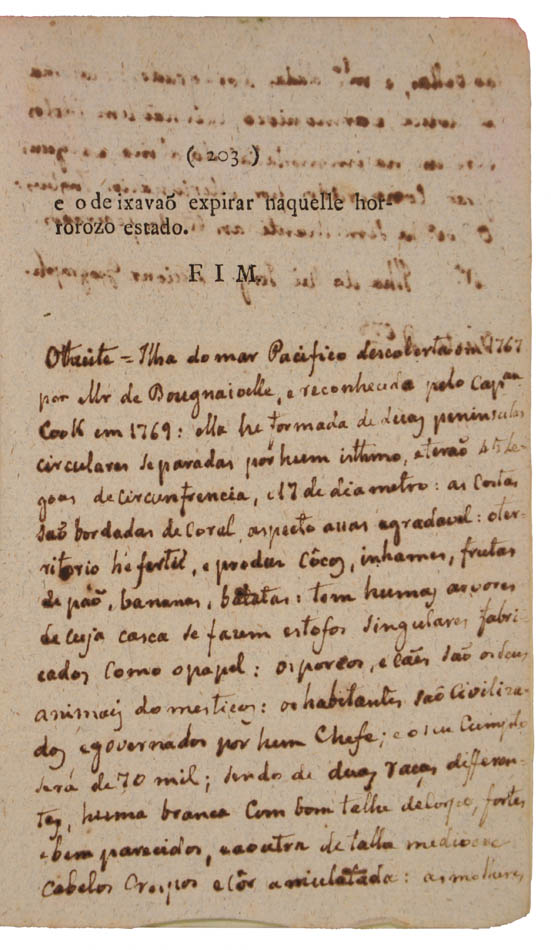 ( 203 )
e o de ixavaõ expirar naquelle hor-
rorozo estado.
F I M.
Otaite = Ilha do mar Pacifico descoberta em 1767
por Mr de Bougnaioelle, e reconhecida pelo Cap.am
Cook em 1769: ella he formada de duas peninsulas
circulares separadas por hum isthmo, e terão 45 le-
goas de circunfrencia, e 17 de diametro: as Costas
saõ bordadas de Coral, aspecto agradavel: o ter-
ritorio he fertil, e produz Côcos, inhames, frutas
de paõ, bananas, batatas: tem humas arvores
de cuja casca se fazem estofos singulares fabri-
cados como o papel: os porcos, e Cães saõ os seus
animais domesticos: os habitantes saõ Civiliza-
dos e governados por hum Chefe; e o seu
será de 70 mil; sendo de duas raças differen-
tes, huma branca com bom talhe de Corpo, fortes
e bem parecidos, e a outra de talha mediocre
Cabelos Crespos e côr amulatada: as molheres